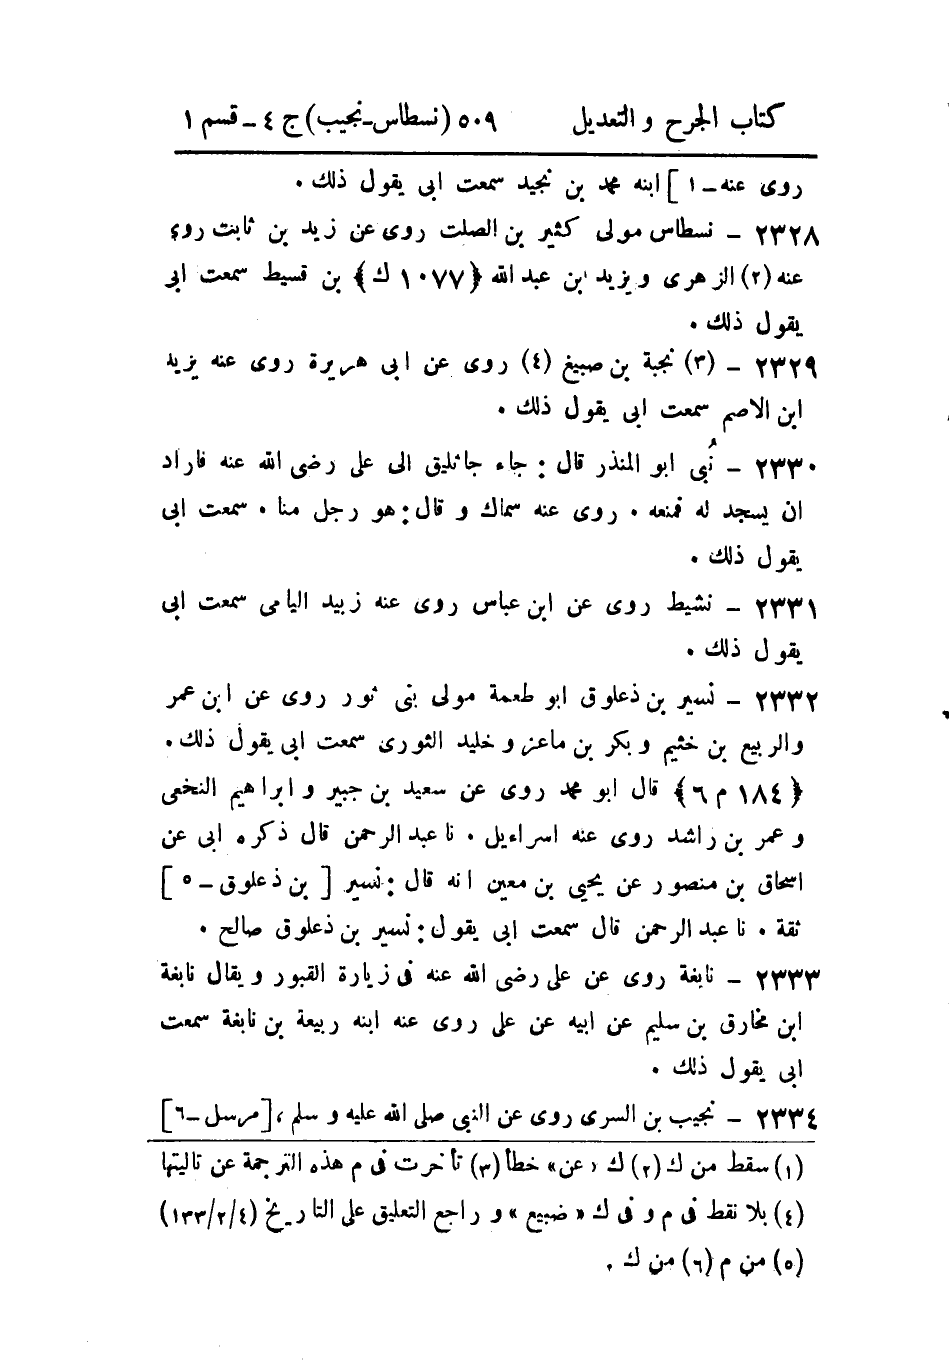 كتاب الجرح والتعديل ٥٠٩ (نسطاس-نجيب) ج ٤ - قسم ١
روى عنه-١] ابنه محمد بن نجيد سمعت ابى يقول ذلك .
٢٣٢٨ - نسطاس مولى كثير بن الصلت روى عن زيد بن ثابت روى
عنه (٢) الزهرى ويزيد ابن عبد الله ﴿١٠٧٧ ك﴾ بن قسيط سمعت ابى
يقول ذلك .
٢٣٢٩ - (٣) نجبة بن صبيغ (٤) روى عن ابى هريرة روى عنه يزيد
ابن الاصم سمعت ابى يقول ذلك .
٢٣٣٠ - نُبى ابو المنذر قال : جاء جاثليق الى على رضى الله عنه فاراد
ان يسجد له فمنعه . روى عنه سماك وقال : هو رجل منا . سمعت ابى
يقول ذلك .
٢٣٣١ - نشيط روى عن ابن عباس روى عنه زبيد اليامى سمعت ابى
يقول ذلك .
٢٣٣٢ - نسير بن ذعلوق ابو طعمة مولى بنى ثور روى عن ابن عمر
والربيع بن خثيم وبكر بن ماعز وخليد الثورى سمعت ابى يقول ذلك .
﴿١٨٤ م ٦﴾ قال ابو محمد روى عن سعيد بن جبير وابراهيم النخعى
وعمر بن راشد روى عنه اسراءيل . نا عبد الرحمن قال ذكره ابى عن
اسحاق بن منصور عن يحيى بن معين انه قال : نسير [بن ذعلوق - ٥]
ثقة . نا عبد الرحمن قال سمعت ابى يقول : نسير بن ذعلوق صالح .
٢٣٣٣ - نابغة روى عن على رضى الله عنه فى زيارة القبور ويقال نابغة
ابن مخارق بن سليم عن ابيه عن على روى عنه ابنه ربيعة بن نابغة سمعت
ابى يقول ذلك .
٢٣٣٤ - نجيب بن السرى روى عن النبى صلى الله عليه وسلم ، [مرسل - ٦]
(١) سقط من ك (٢) ك « عن» خطأ (٣) تأخرت فى م هذه الترجمة عن تاليتها
(٤) بلا نقط فى م وفى ك « ضبيع » وراجع التعليق على التاريخ (٤/٢/١٣٣)
(٥) من م (٦) من ك .